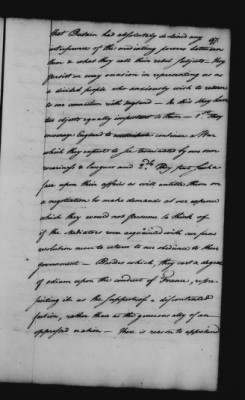 that Britain had absolutely declined any
interference of the mediating powers between
them & what they call their rebel subjects - they
persist on every occasion in representing us as
a divided people who anxiously wish to return
to our connection with England - In this they have
two objects equally important to them - 1st they
encourage England to continue a War
which they expect to be terminated by our own
weariness & languor and 2dly They put such a
face upon their affairs as will entitle them on
a negotiation to make demands at our expence
which they would not presume to think of
if the Mediators were acquainted with our firm
resolution never to return to our obedience to their
government - Besides which, they cast a degree
of odium upon the conduct of France, repre-
senting it as the supporters of a discontented
faction, rather than as the generous ally of an
oppressed nation - there is reason to apprehend